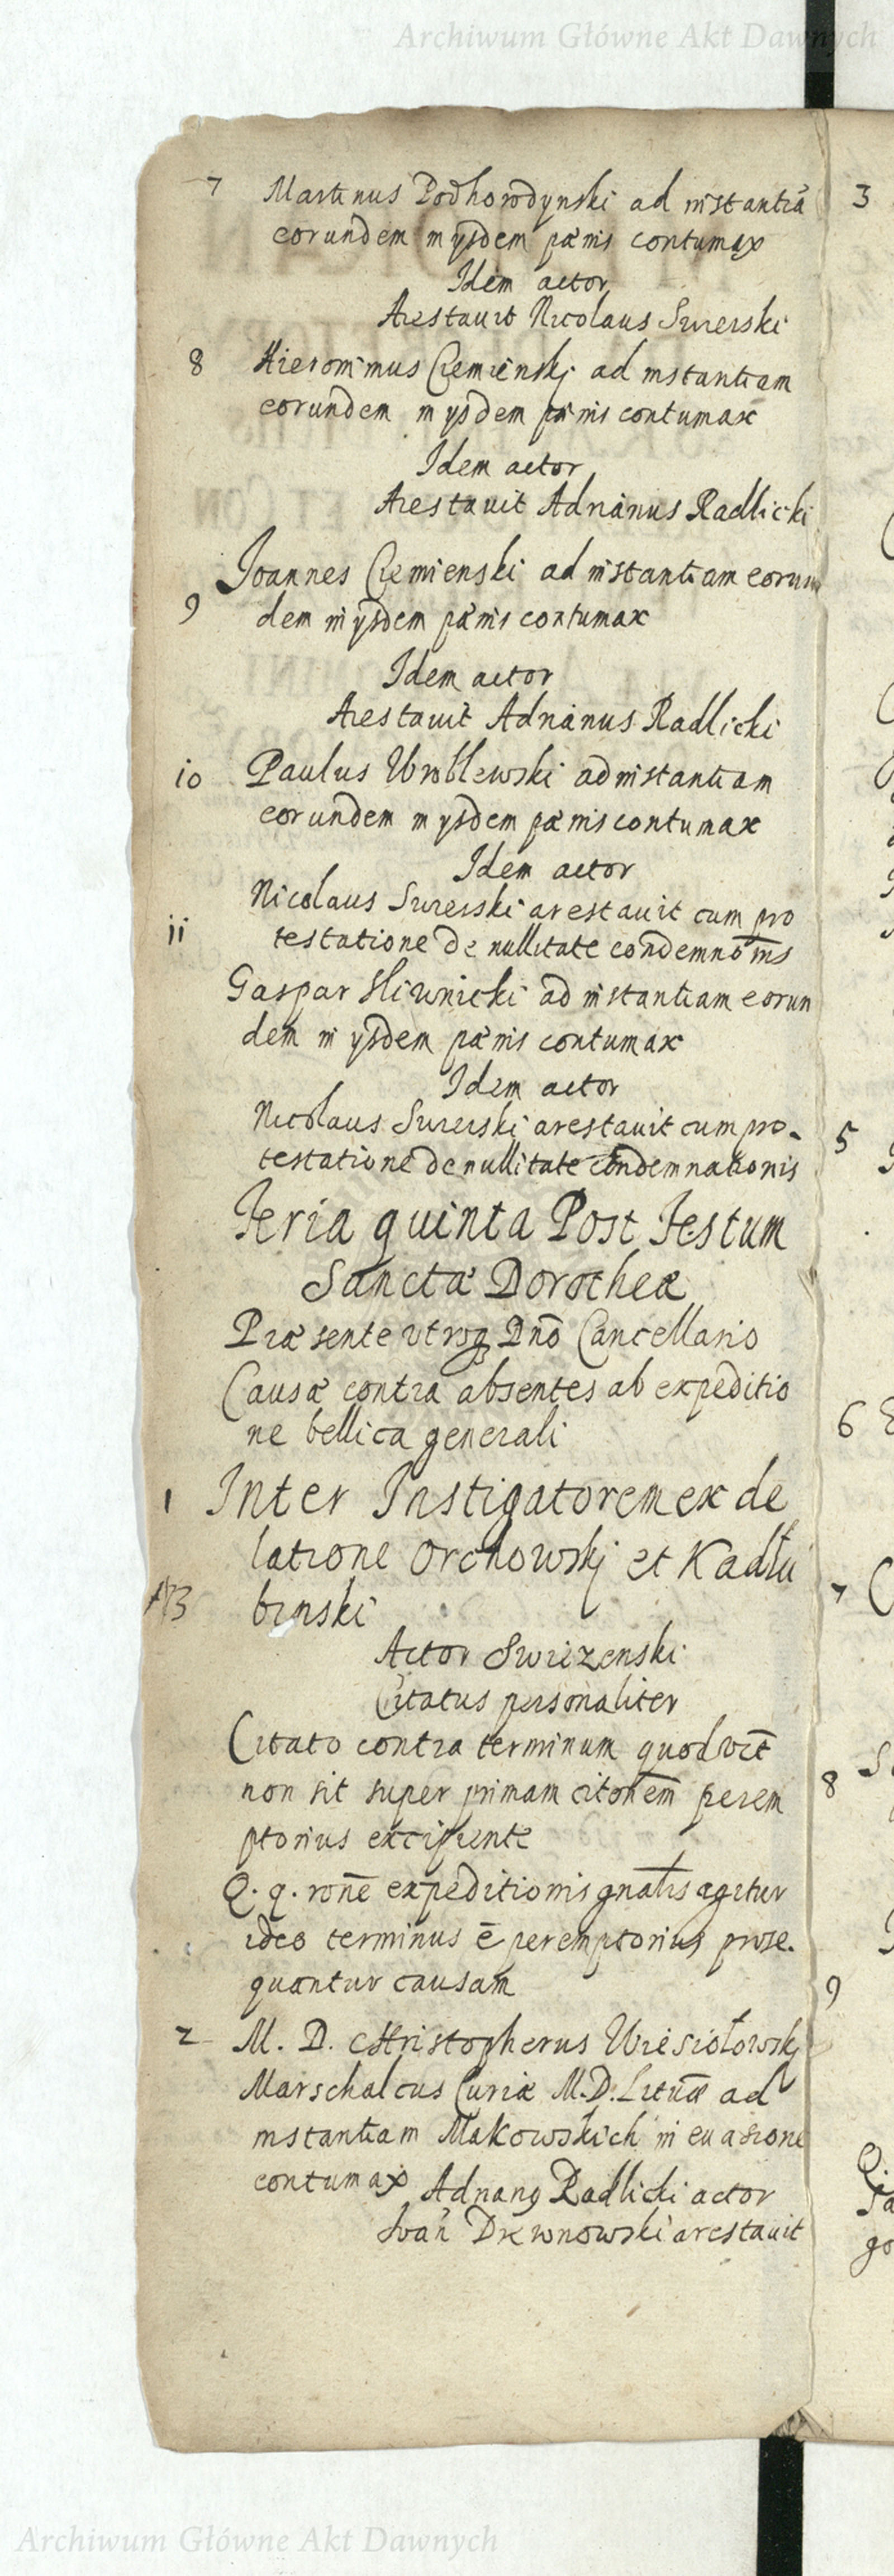 Archiwum Główne Akt Dawnych
7 Martinus Podhorodynski ad instantiā
eorundem in ysdem pænis contumax
Idem actor
Arestavit Nicolaus Swierski
8 Hieronimus Ciemienskj ad instantiam
eorundem in ysdem pænis contumax
Idem actor
Arestavit Adrianus Radlicki
9 Joannes Ciemienski ad instantiam eorun
dem in ysdem pænis contumax
Idem actor
Arestavit Adrianus Radlicki
10 Paulus Wroblewski ad instantiam
eorundem in ysdem pænis contumax
Idem actor
Nicolaus Swierski arestavit cum pro
11 testatione de nullitate condemnōnis
Gaspar Sliwnicki ad instantiam eorun
dem in ysdem pænis contumax
Idem actor
Nicolaus Swierski arestavit cum pro-
testatione de nullitate condemnationis
Feria quinta Post Festum
Sanctæ Dorotheæ
Præsente utroq; Dnō Cancellario
Causæ contra absentes ab expeditio
ne bellica generali
1 Inter Instigatorem ex de
latione Orchowskj et Kadłu
binski
Actor Swizenski
Citatus personaliter
Citato contra terminum quod
non sit super primam citōnem perem
ptorius excipiente
Q. q. rōne expeditionis gnālis agitur
ideo terminus ē peremptorius prose-
quantur causam
2 M. D. Christopherus Wiesiołowskj
Marschalcus Curiæ M. D. Lituæ ad
instantiam Makowskich in evasione
contumax Adrianus Radlicki actor
Ivan Drewnowski arestavit
3
5
6
7
8
9
go
Archiwum Główne Akt Dawnych